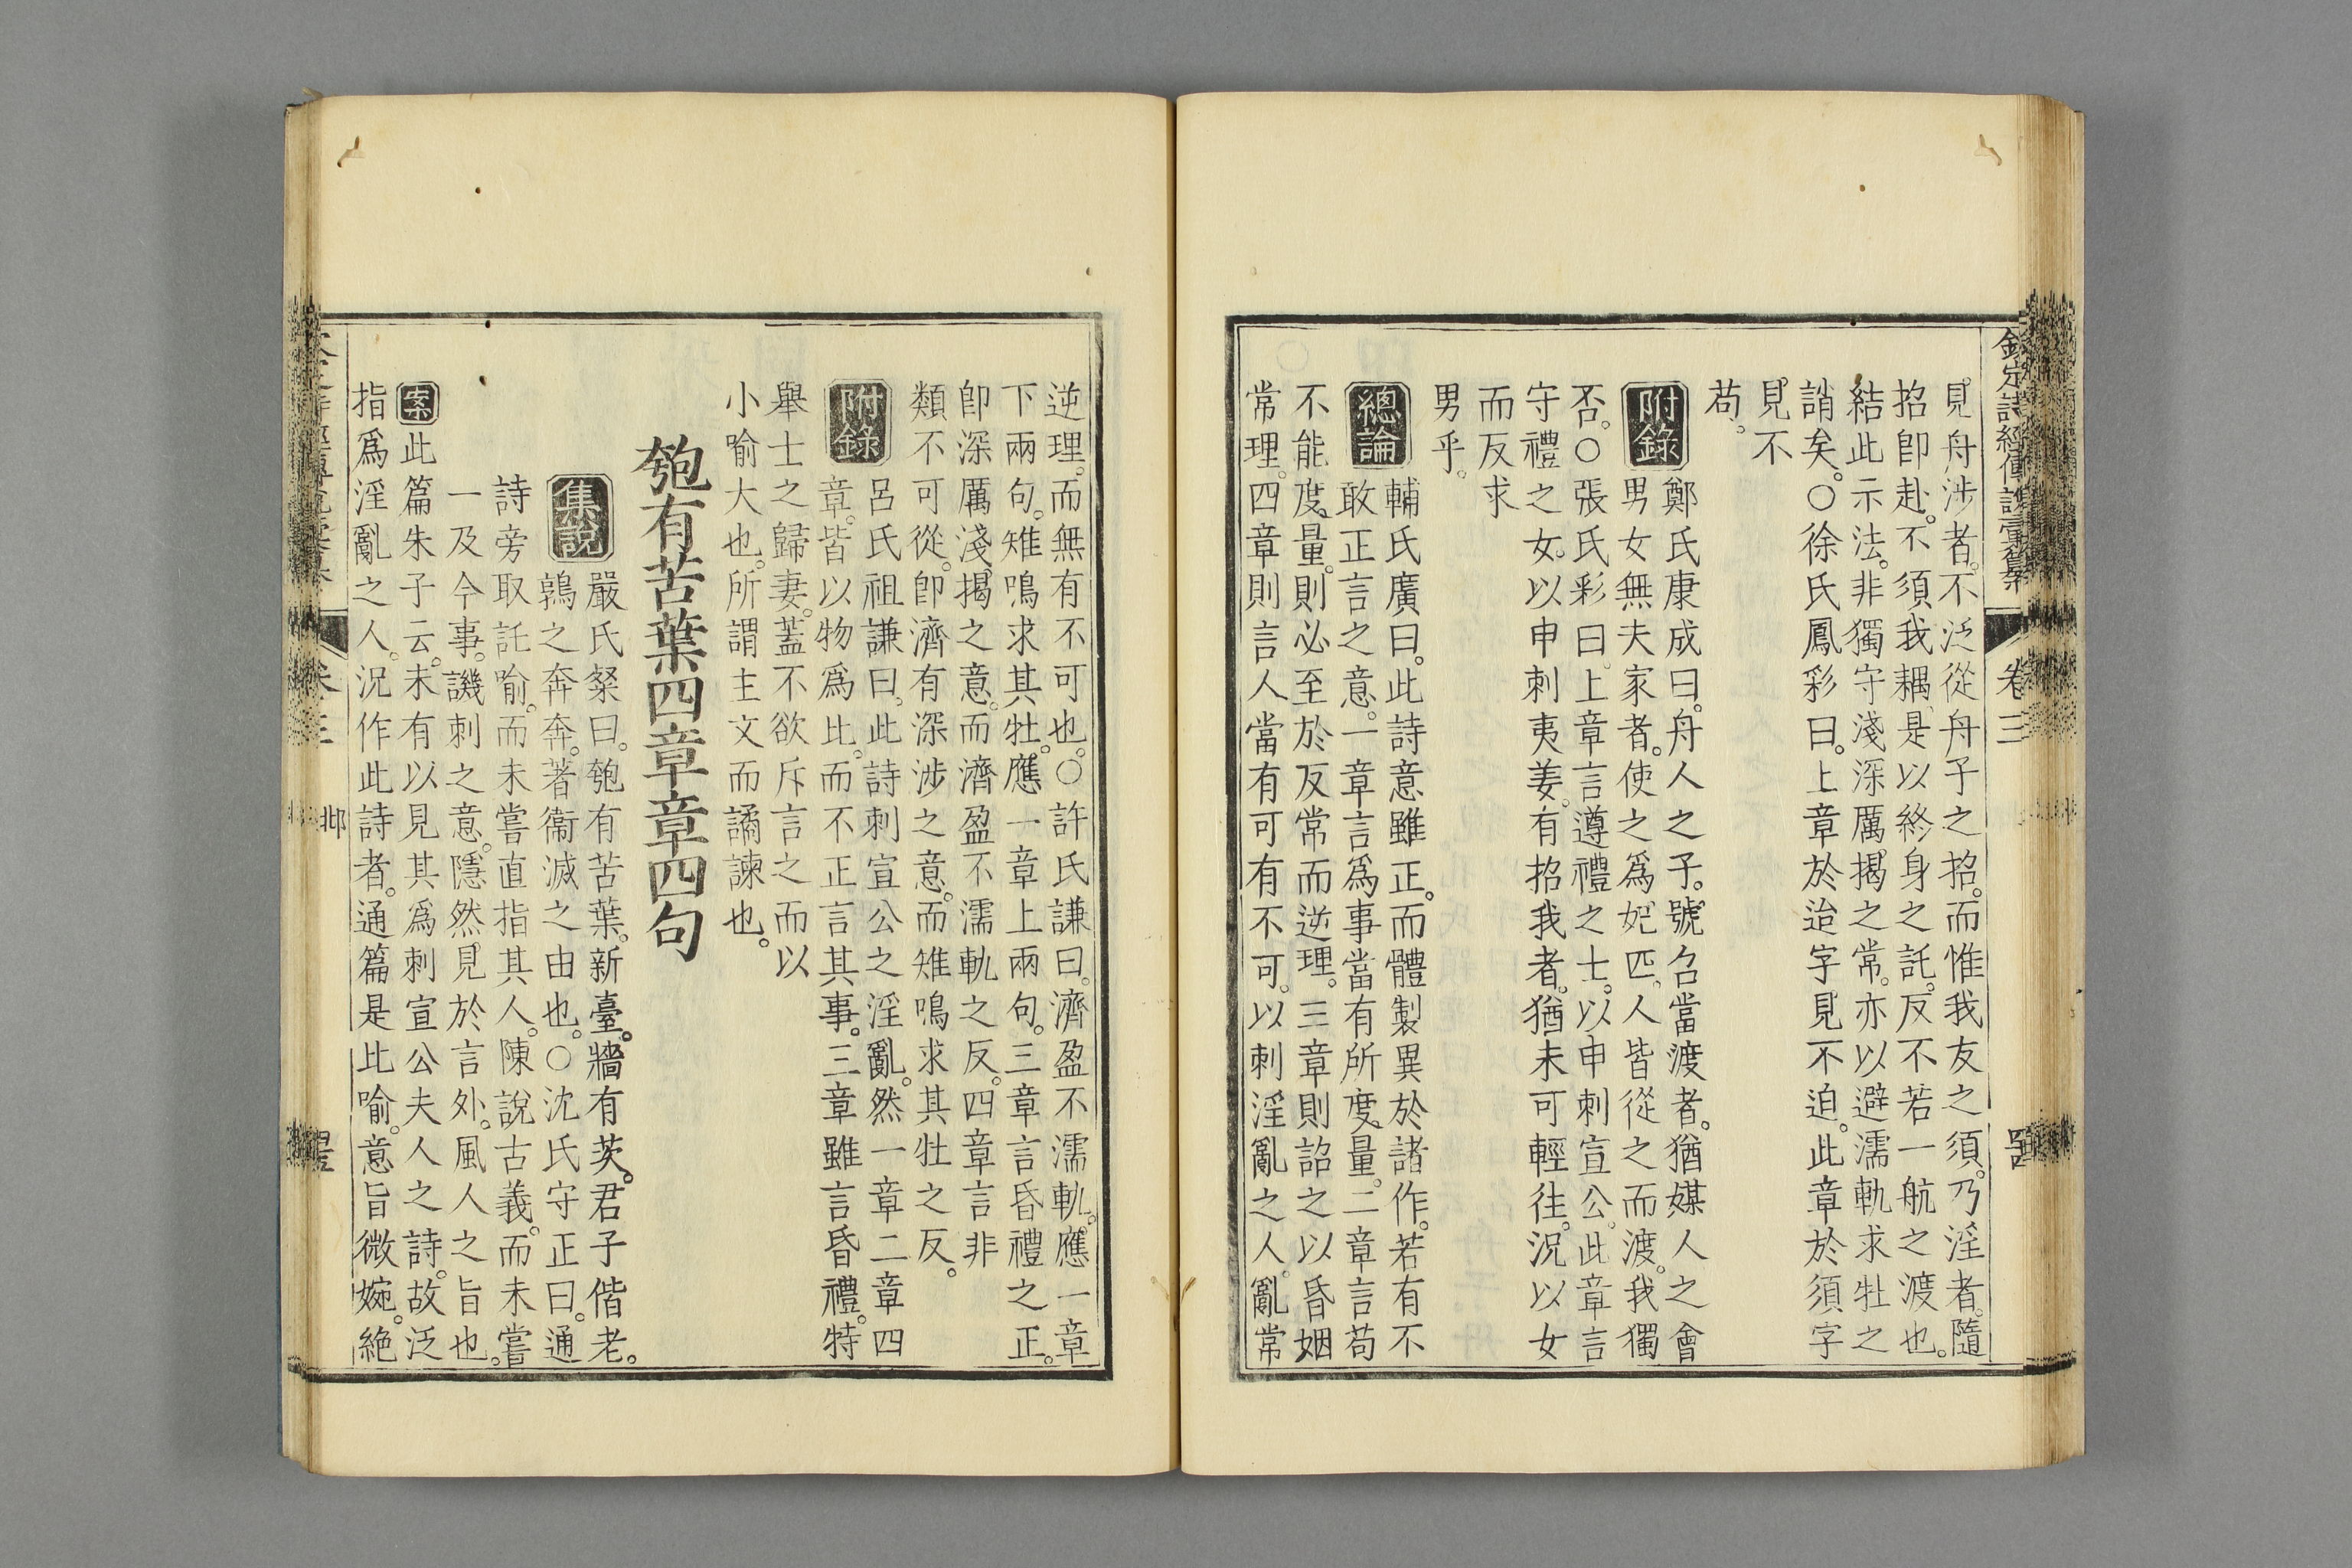 欽定詩經傳說彙纂 卷三
見舟涉者。不泛從舟子之招。而惟我友之須。乃淫者。隨
招卽赴。不須我耦。是以終身之託。反不若一航之渡也。
結此示法。非獨守淺深厲揭之常。亦以避濡軌求牡之
誚矣。○徐氏鳳彩曰。上章於迨字見不迫。此章於須字
見不
苟。
附錄
鄭氏康成曰。舟人之子。號召當渡者。猶媒人之會
男女無夫家者。使之爲妃匹。人皆從之而渡。我獨
否。○張氏彩曰。上章言遵禮之士。以申刺宣公。此章言
守禮之女。以申刺夷姜。有招我者。猶未可輕往。況以女
而反求
男乎。
總論
輔氏廣曰。此詩意雖正。而體製異於諸作。若有不
敢正言之意。一章言爲事當有所度量。二章言苟
不能度量。則必至於反常而逆理。三章則詔之以昏姻
常理。四章則言人當有可有不可。以刺淫亂之人。亂常
逆理。而無有不可也。○許氏謙曰。濟盈不濡軌。應一章
下兩句。雉鳴求其牡。應一章上兩句。三章言昏禮之正。
卽深厲淺揭之意。而濟盈不濡軌之反。四章言非
類不可從。卽濟有深涉之意。而雉鳴求其牡之反。
附錄
呂氏祖謙曰。此詩刺宣公之淫亂。然一章二章四
章。皆以物爲比。而不正言其事。三章雖言昏禮。特
舉士之歸妻。蓋不欲斥言之而以
小喻大也。所謂主文而譎諫也。
匏有苦葉四章章四句
集說
嚴氏粲曰。匏有苦葉。新臺。牆有茨。君子偕老。
鶉之奔奔。著衞滅之由也。○沈氏守正曰。通
詩旁取託喻。而未嘗直指其人。陳說古義。而未嘗
一及今事。譏刺之意。隱然。見於言外。風人之旨也。
案
此篇朱子云。未有以見其爲刺宣公夫人之詩。故泛
指爲淫亂之人。況作此詩者。通篇是比喻。意旨微婉。絶
邶